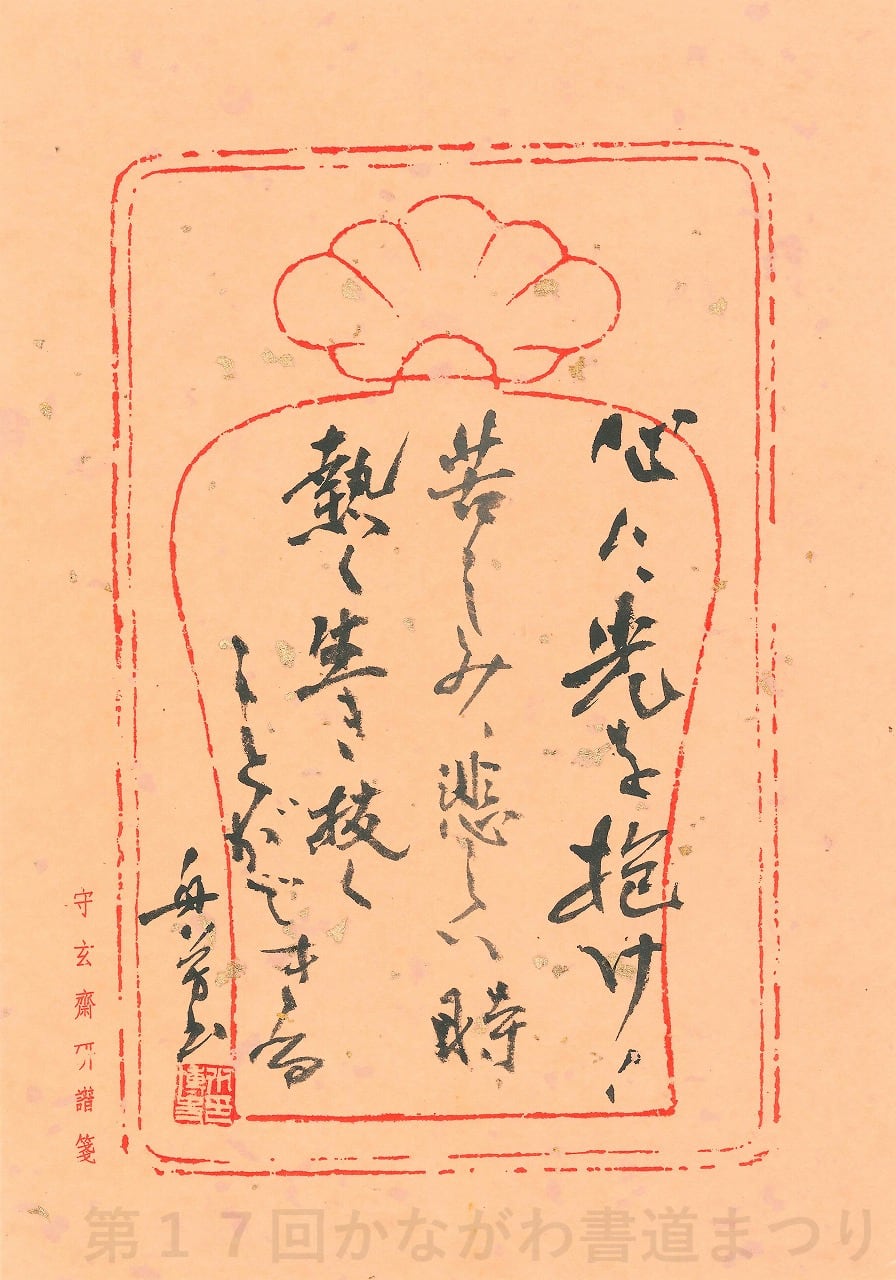 心に光を抱けば
苦しみ、悲しい時
熱く生き抜く
ことができる
舟芳書
守玄齋研譜箋
第１７回かながわ書道まつり